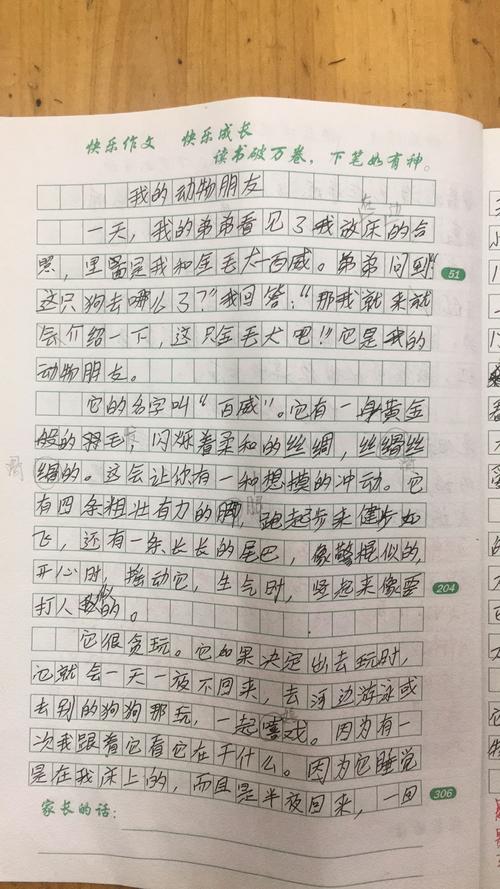 快乐作文 快乐成长
读书破万卷，下笔如有神。
我的动物朋友
一天，我的弟弟看见了我放床的合
照，里面是我和金毛犬百威。弟弟问到“
这只狗去哪么了？”我回答：“那我就来就
会介绍一下，这只金毛犬吧！”它是我的
动物朋友。
51
它的名字叫“百威”。它有一身黄金
般的羽毛，闪烁着柔和的丝绸，丝绸丝
绸的。这会让你有一种想摸的冲动。它
有四条粗壮有力的脚，跑起步来健步如
飞，还有一条长长的尾巴，像警棍似的，
开心时，摇动它，生气时，竖起来像要
204
打人似的。
它很贪玩。它如果决定出去玩时，
它就会一天一夜不回来，去河边游泳或
去别的狗狗那玩，一起嘻戏。因为有一
次我跟着它看它在干什么。因为它睡觉
是在我床上的，而且是半夜回来，一回
306
家长的话：